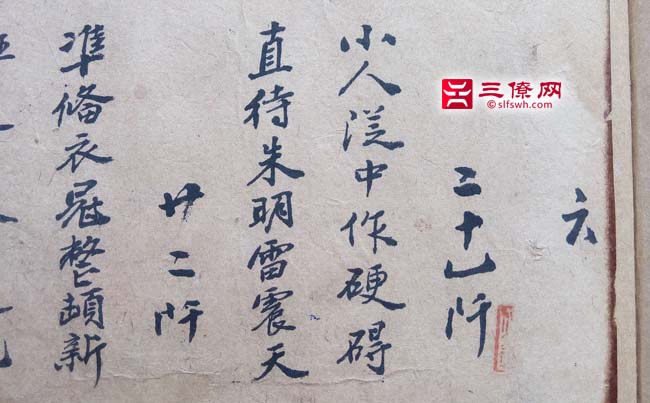 三僚网
© slfswh.com
二十乙阡
小人從中作硬碍
直待朱明雷震天
廿二阡
凖備衣冠整頓新